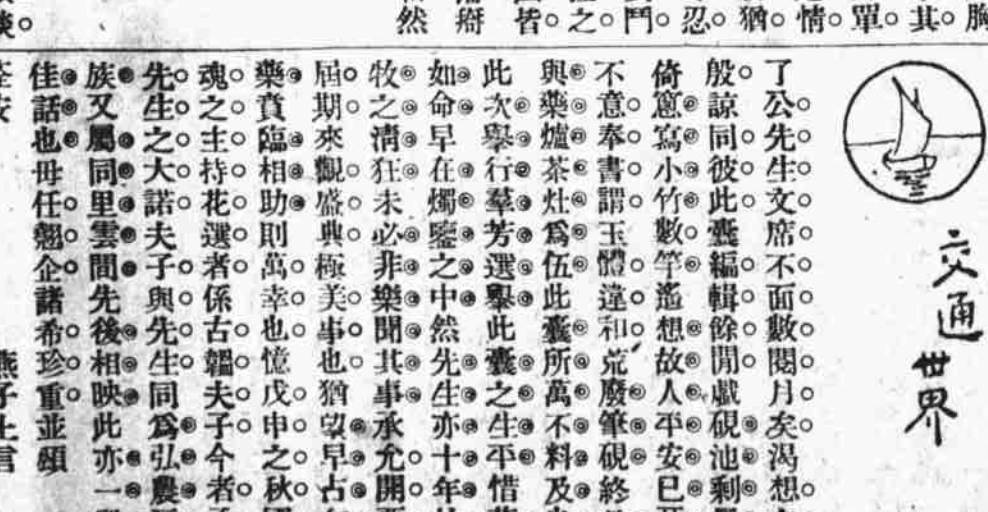 胸
其
單
情
猶
忍
鬥
之
皆
然
交通世界
了公先生文席不面數閱月矣渴想
般諒同彼此囊編輯餘閒戲硯池剩
倚窻寫小竹數竿遙想故人平安已
不意奉書謂玉體違和荒廢筆硯終
與藥爐茶灶爲伍此囊所萬不料及
此次舉行羣芳選舉此囊之生平惜
如命早在燭鑒之中然先生亦十年
牧之淸狂未必非樂聞其事承允開
屆期來觀盛典極美事也猶望早占
藥賁臨相助則萬幸也憶戊申之秋
魂之主持花選者係古韞夫子今者
先生之大諾夫子與先生同爲弘農
族又屬同里雲間先後相映此亦一
佳話也毋任翹企諸希珍重並頌
荃安　燕子上言